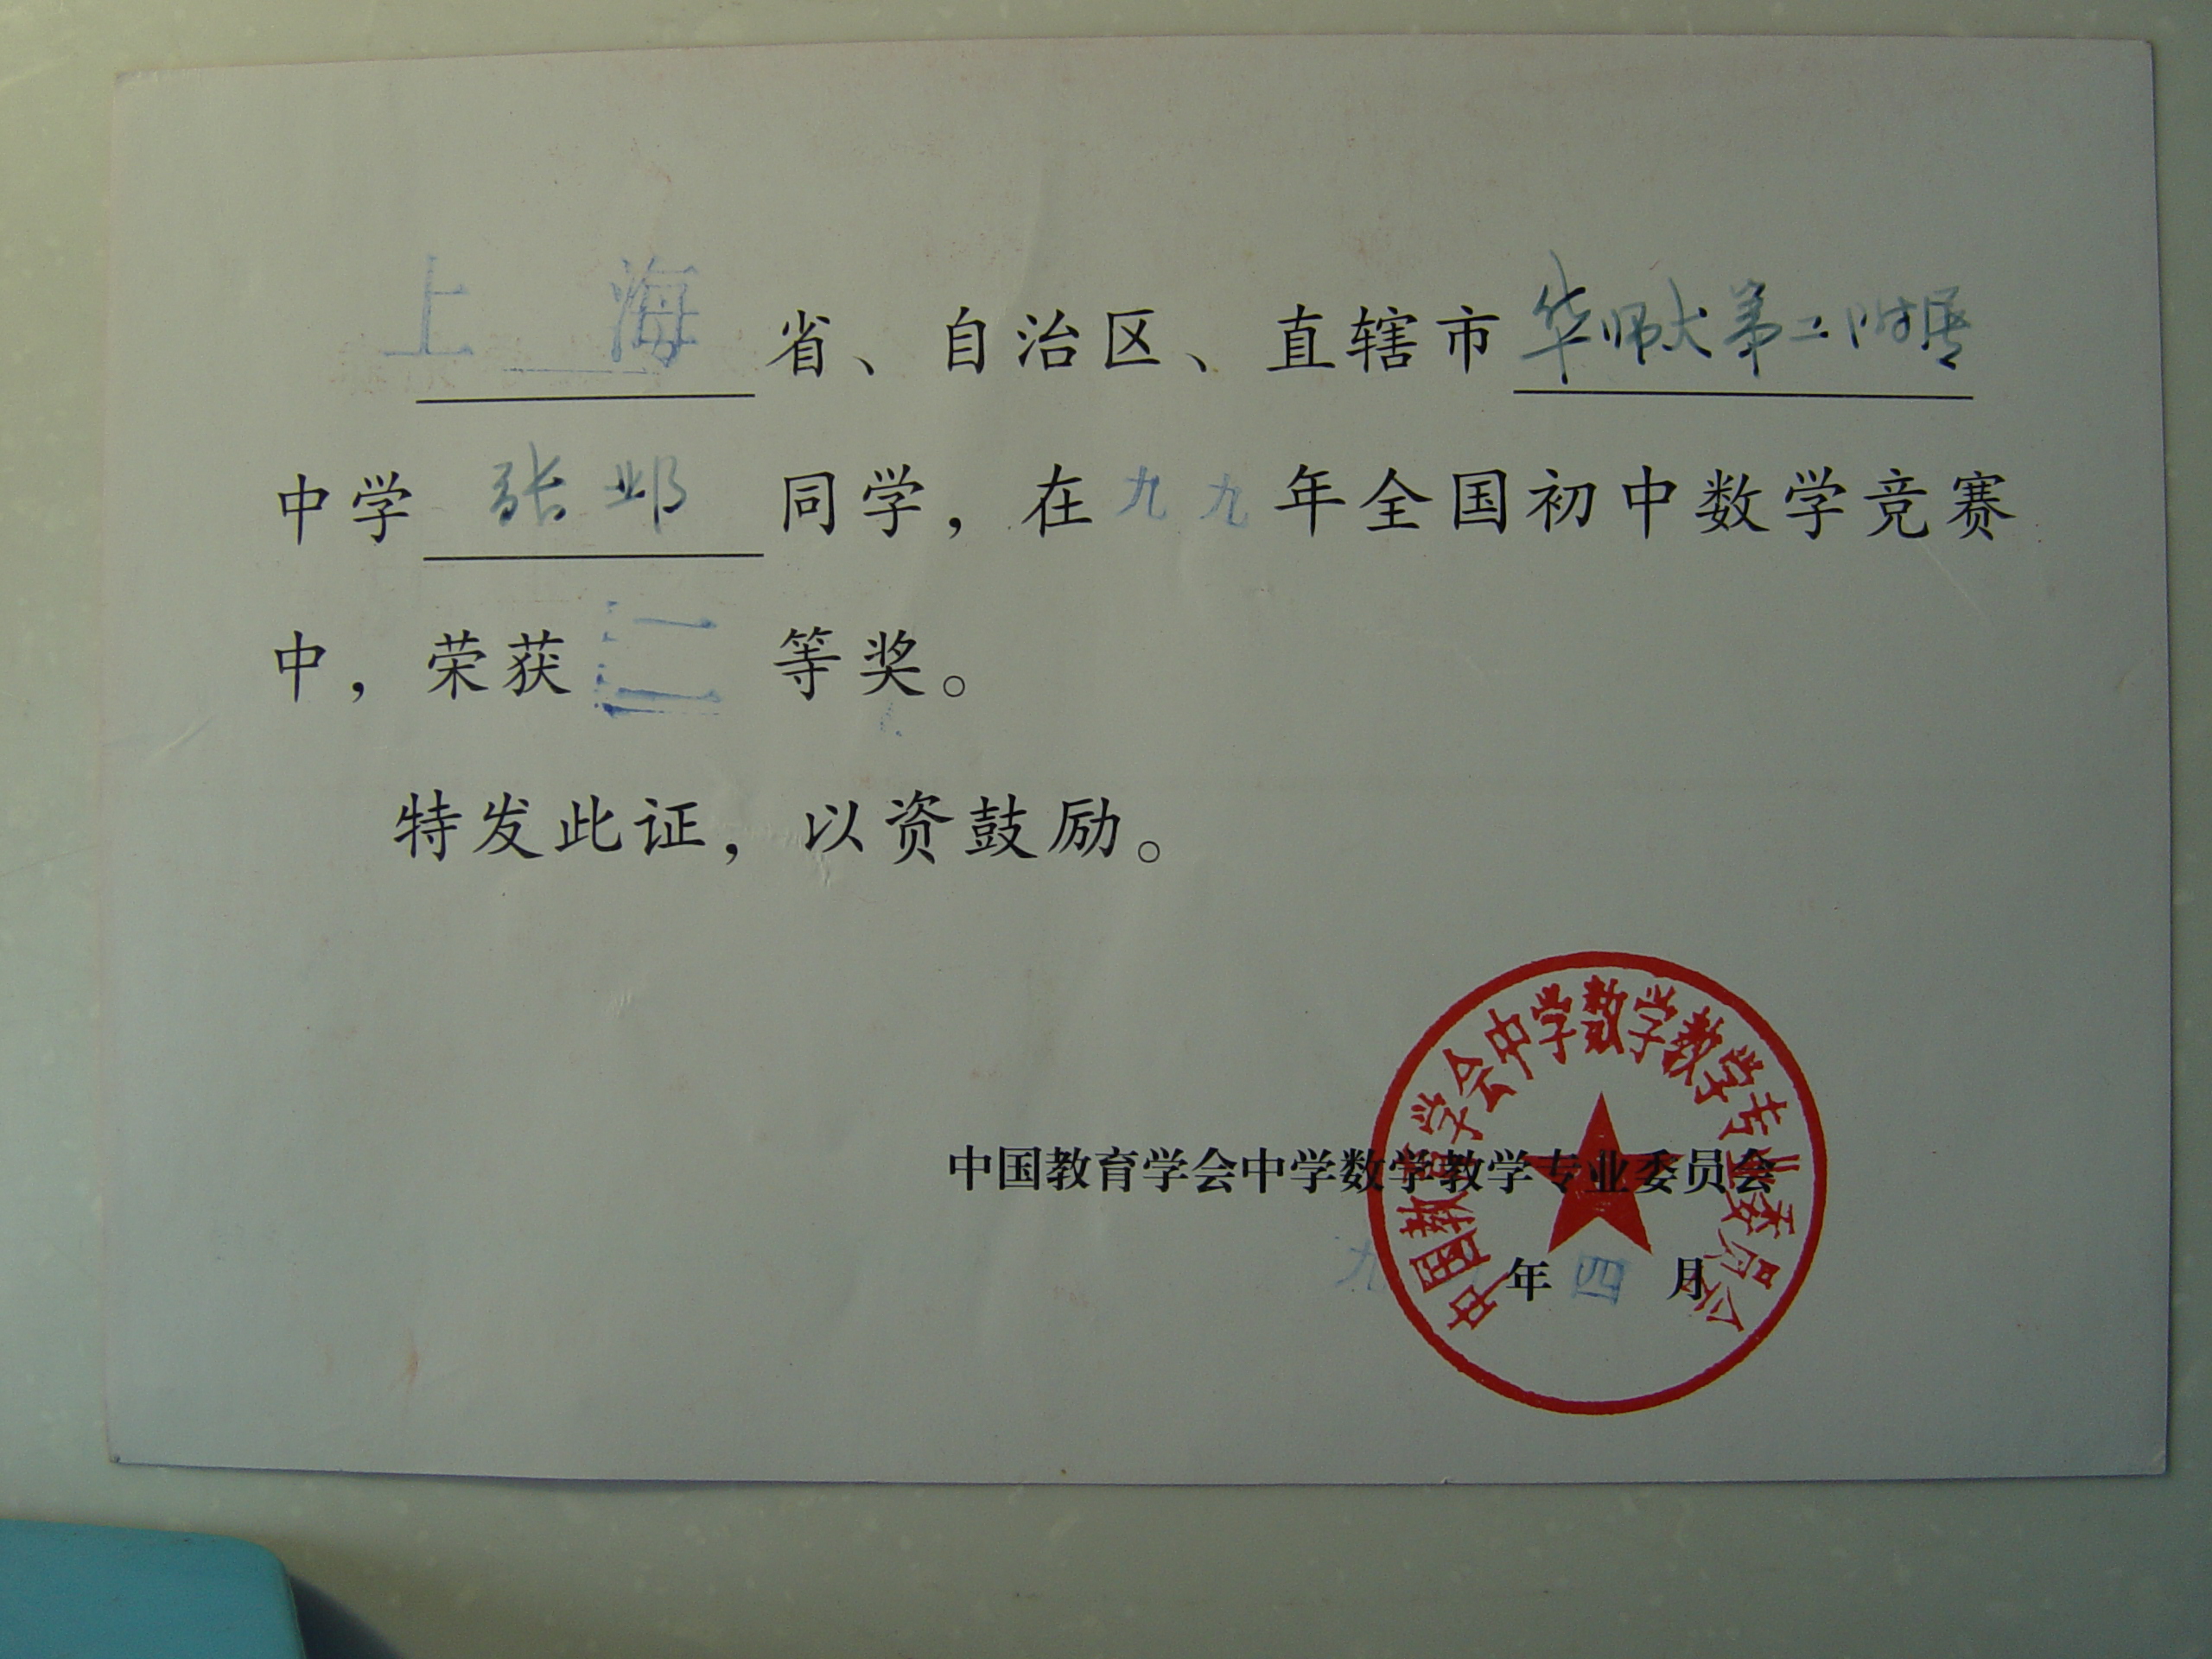 上海省、自治区、直辖市华师大第二附属
中学张邺同学，在九九年全国初中数学竞赛
中，荣获二等奖。
特发此证，以资鼓励。
中国教育学会中学数学教学专业委员会
九九年四月
中国教育学会中学数学教学专业委员会